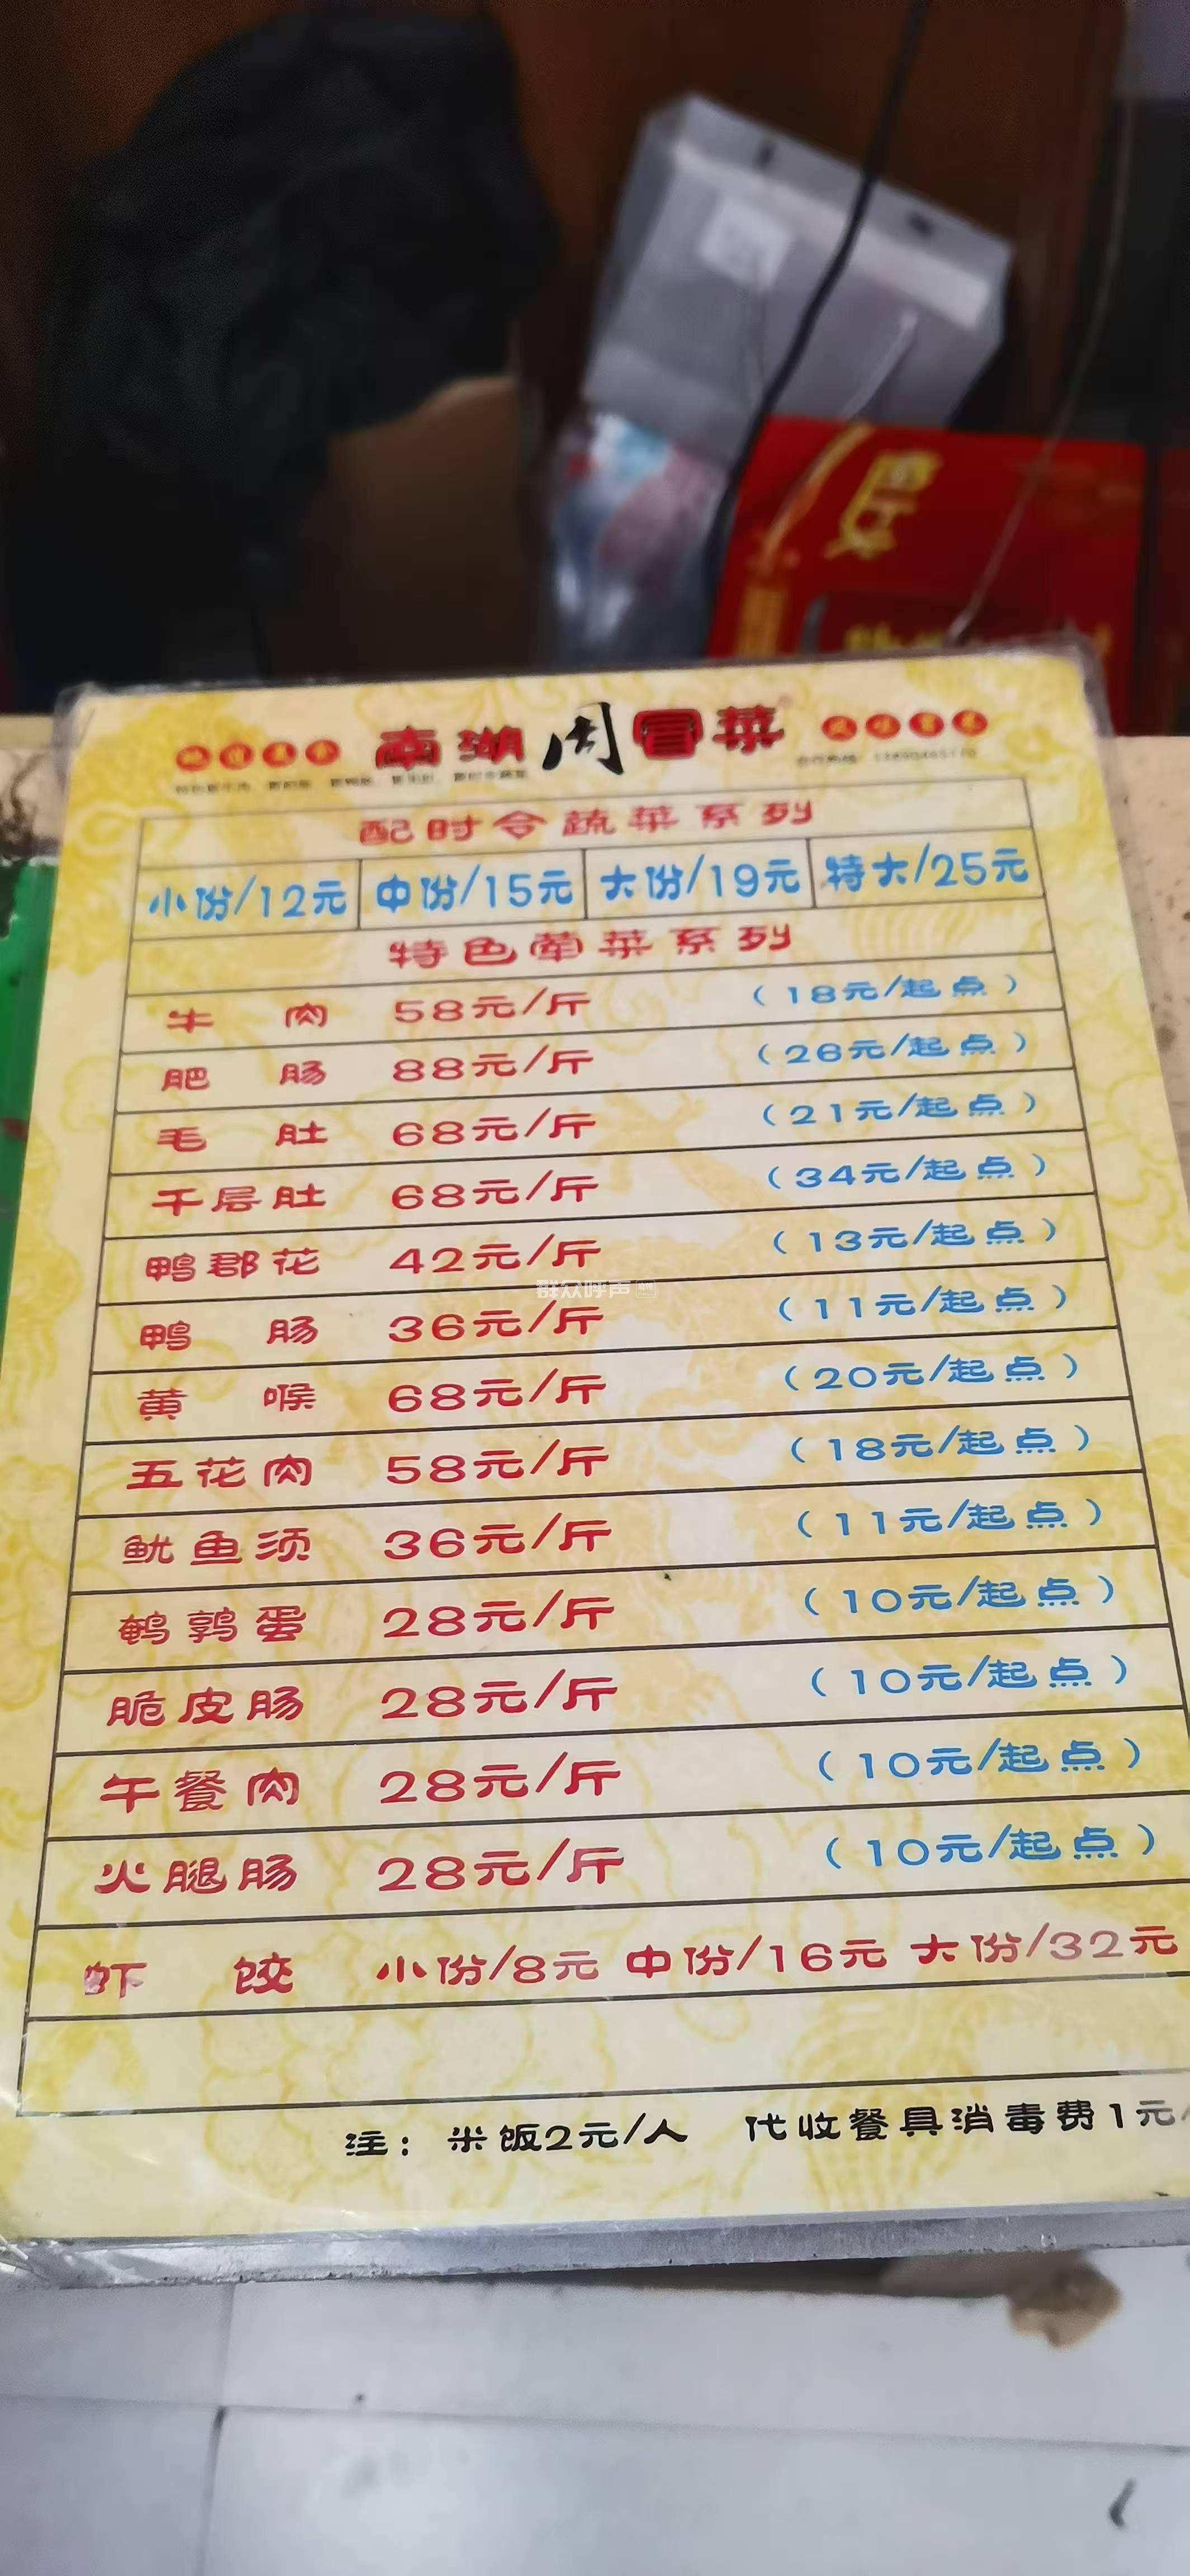 南湖周冒菜
配时令蔬菜系列
小份/12元 中份/15元 大份/19元 特大/25元
特色荤菜系列
牛肉 58元/斤 (18元/起点)
肥肠 88元/斤 (26元/起点)
毛肚 68元/斤 (21元/起点)
千层肚 68元/斤 (34元/起点)
鸭郡花 42元/斤 (13元/起点)
鸭肠 36元/斤 (11元/起点)
黄喉 68元/斤 (20元/起点)
五花肉 58元/斤 (18元/起点)
鱿鱼须 36元/斤 (11元/起点)
鹌鹑蛋 28元/斤 (10元/起点)
脆皮肠 28元/斤 (10元/起点)
午餐肉 28元/斤 (10元/起点)
火腿肠 28元/斤 (10元/起点)
虾饺 小份/8元 中份/16元 大份/32元
注：米饭2元/人 代收餐具消毒费1元/
群众呼声